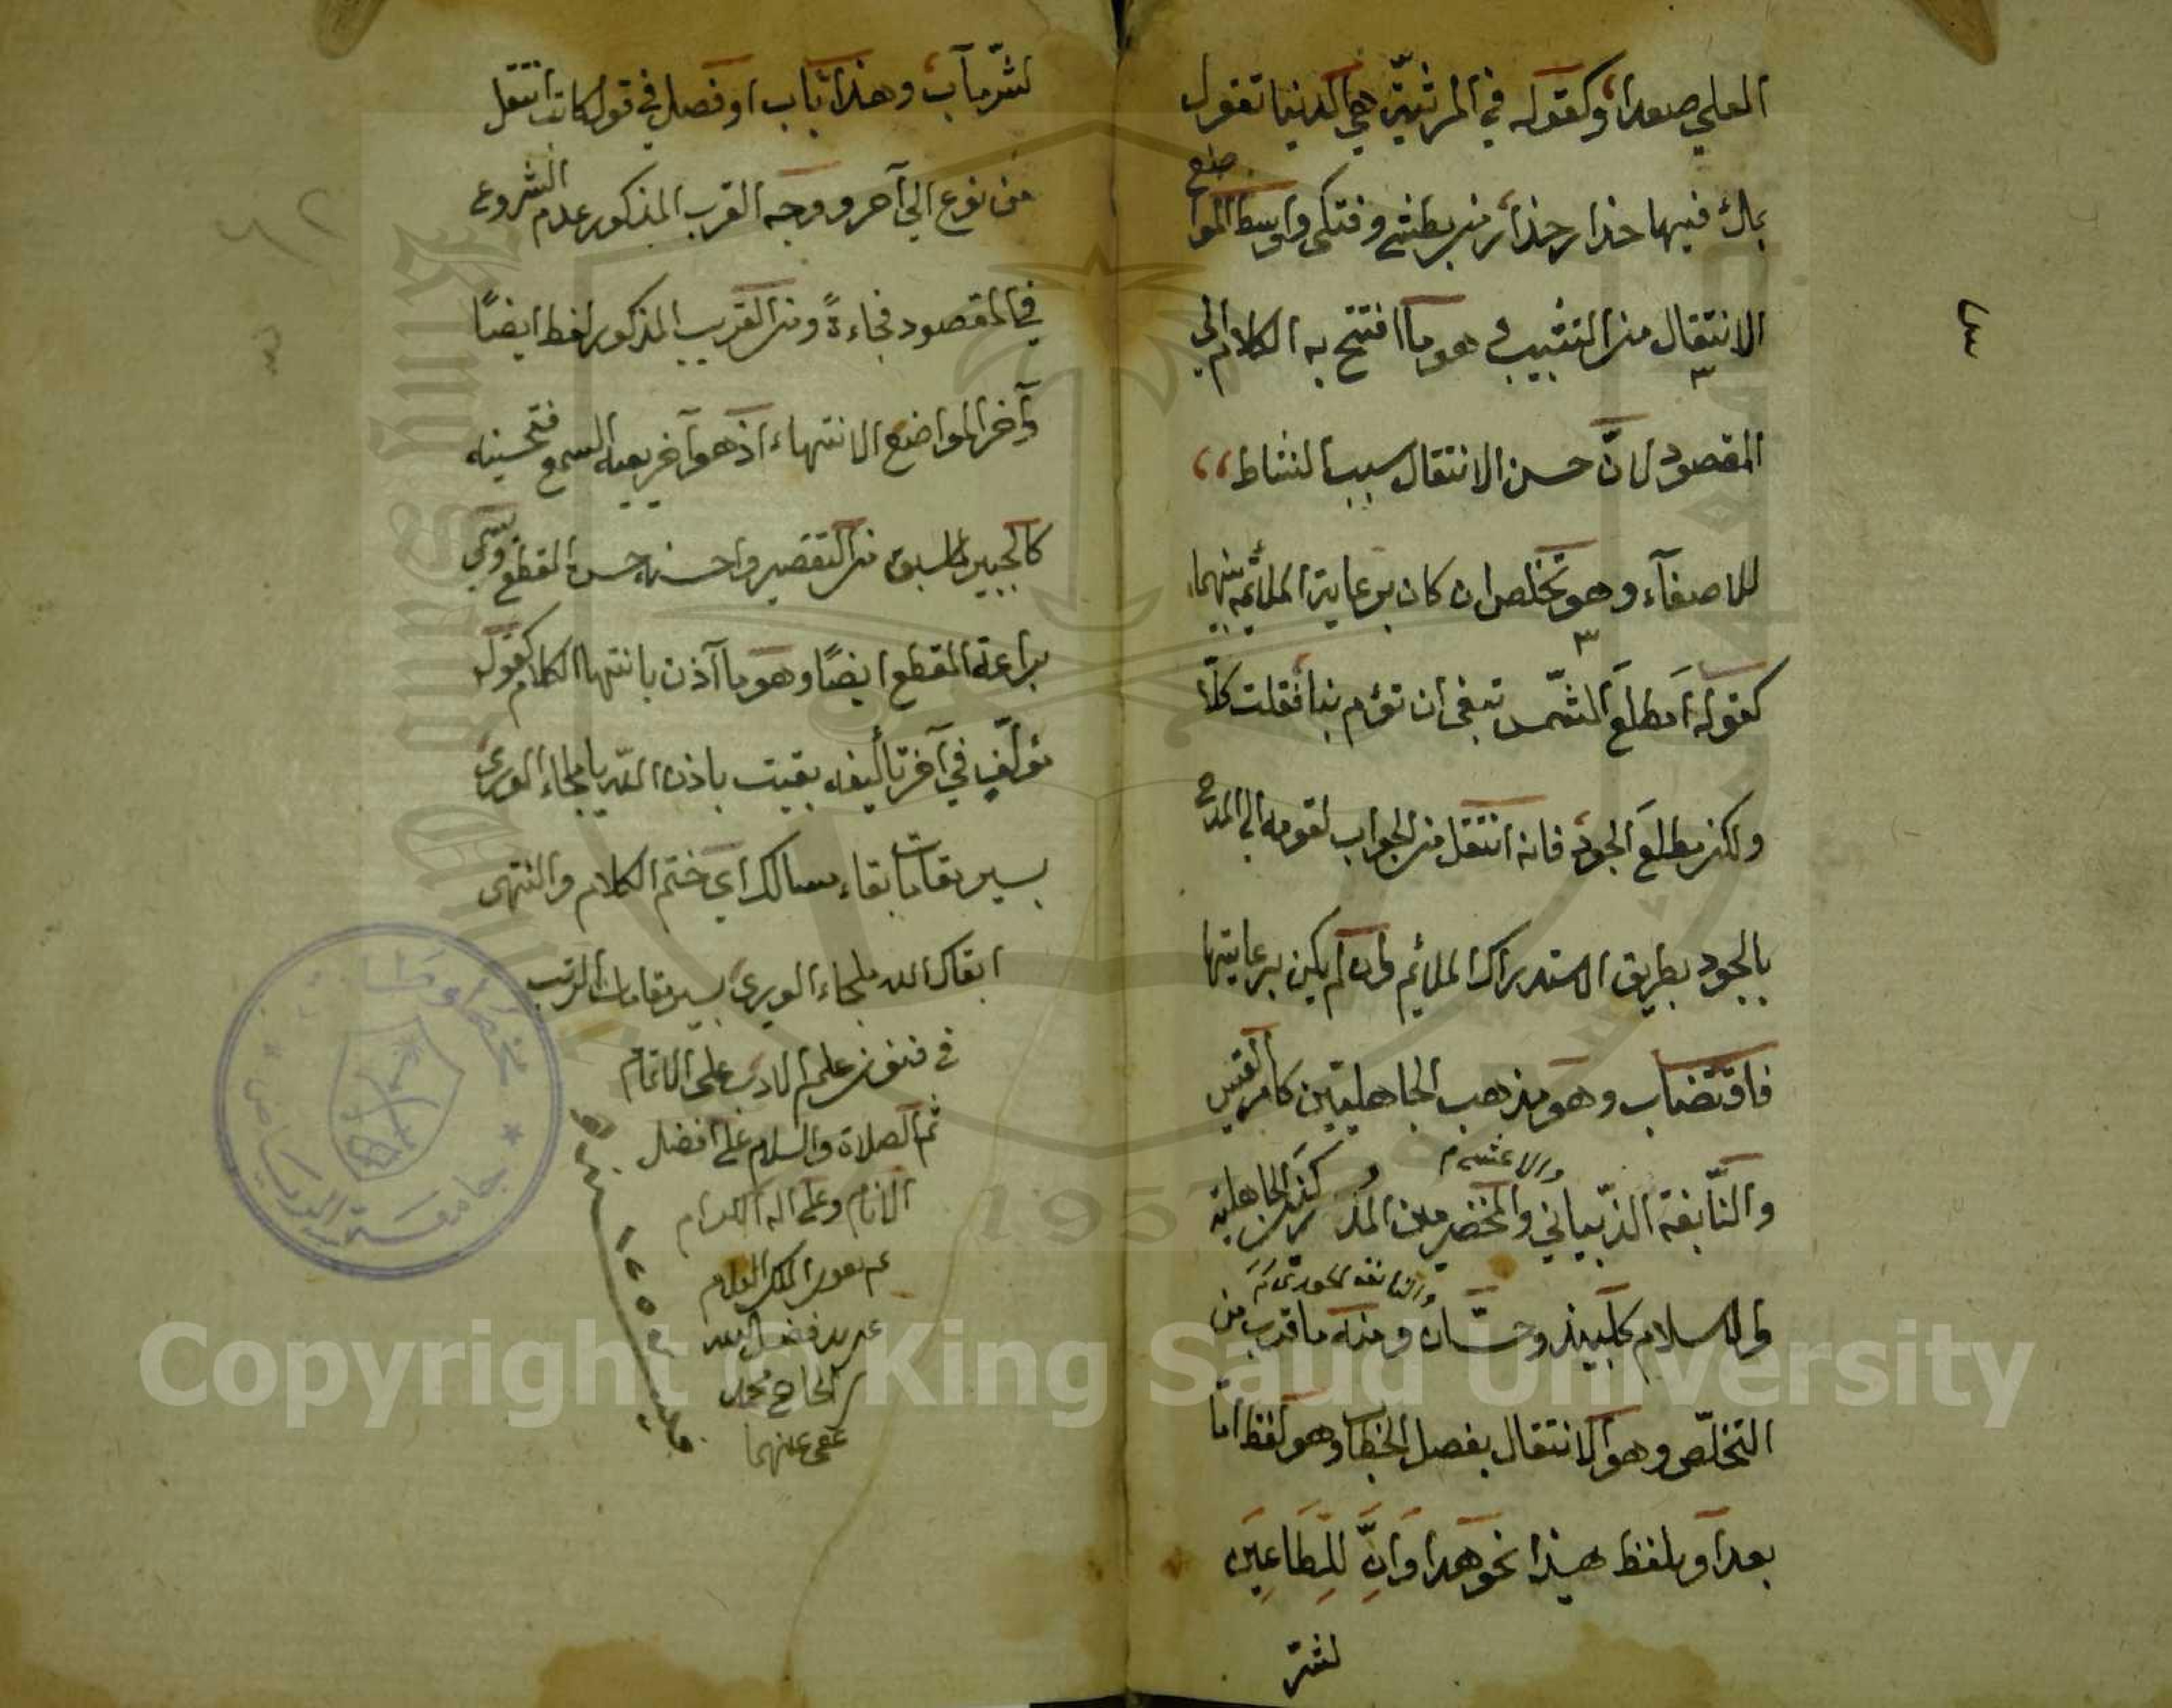 العلى صعدا، وكقوله في المرثيّة هي الدنيا تقول
بملأ فيها حذار حذار من بطشي وفتكي واوسط المواضع
الانتقال من التشبيب هو ما افتتح به الكلام الى
المقصود لانّ حسن الانتقال سبب النشاط
للاصغآء وهو تخلص ان كان برعاية الملائمة بينهما
كقوله أمطلعَ الشّمس تبغى ان تؤم بنا فقلت كلّا
ولكن مطلعَ الجود فانه انتقل من الجواب لقومه الى المدح
بالجود بطريق الاستدراك الملائم وان لم يكن برعايتها
فاقتضاب وهو مذهب الجاهليّين كامرئ القيس
والاعشى م
والنّابغة الذّبياني والمخضرمين المدركين الجاهلية
والنابغة الجعدى م
والاسلام كلبيد وحسّان ومنه ما قرب من
التخلّص وهو الانتقال بفصل الخطاب وهو لفظ امّا
بعد او بلفظ هذا نحو هذا وَاِنَّ لِلطَاغِينَ
لشرّ
٤٣
لشرّ مآب، وهذا باب او فصل في قول كاتب انتقل
من نوع الى آخر ووجه القرب المذكور عدم الشروع
في المقصود فجاءةً ومن القريب المذكور لفظ ايضًا
وآخر المواضع الانتهاء اذ هو آخر يعيه السمع فتحسينه
كالجبير لما سبق من التقصير واحسنه حسن المقطع ويسمّى
براعة المقطع ايضًا وهو ما آذن بانتهاء الكلام كقول
مؤلّفٍ في آخر تأليفه بقيت باذن اللّه يا ملجاء الورى
بسير مقامات بقاء مسالك اي ختم الكلام والنتهى
ابقاك الله ملجاء الورى بسير مقامات الرتب
في فنون علم الادب على الاتمام
ثم الصلاة والسلام على افضل
الانام وعلى اله الكرام
تم بعون الملك العلام
عن يد فضل الله
بن الحاج محمد
عفى عنهما
سنة
جامعة الرياض
مخطوطات
Copyright © King Saud University
1957